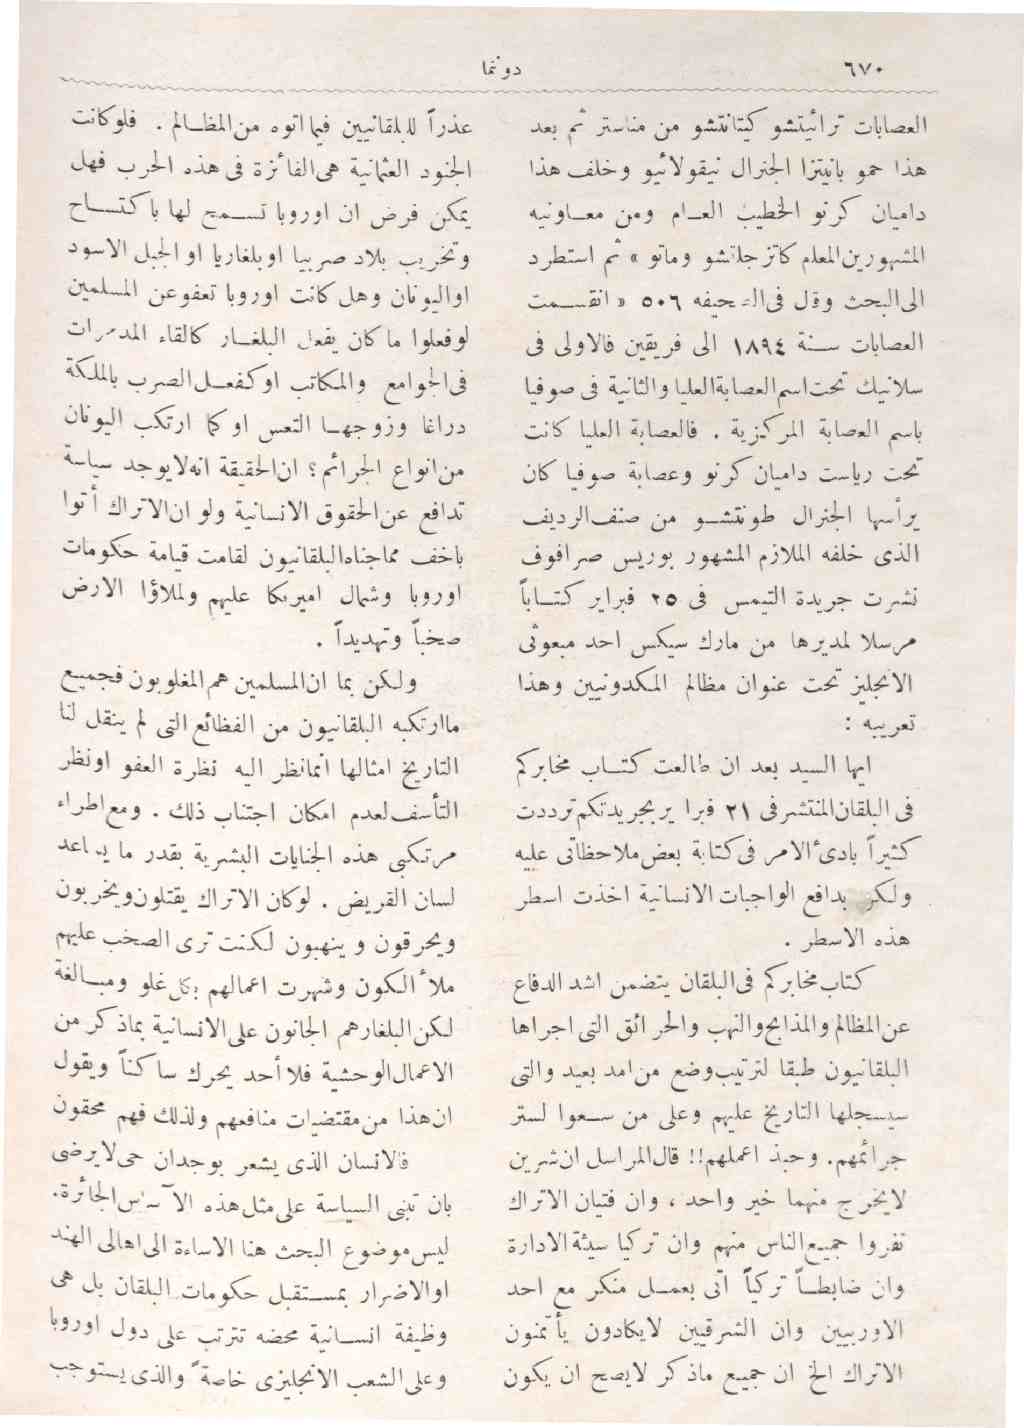 ٦٧٠
دونما
العصابات ترائيتشو كيتانتشو من مناستر ثم بعد
هذا حمو بانيتزا الجنرال نيقولائيو وخلف هذا
داميان كرنو الخطيب العام ومن معاونيه
المشهورين المعلم كاتزجانشو وماتو » ثم استطرد
الى البحث وقال فى الصحيفه ٥٠٦ « انقسمت
العصابات سنة ١٨٩٤ الى فريقين فالاولى فى
سلانيك تحت اسم العصابة العليا والثانية فى صوفيا
باسم العصابة المركزية . فالعصابة العليا كانت
تحت رياست داميان كرنو وعصابة صوفيا كان
يرأسها الجنرال طونتشو من صنف الرديف
الذى خلفه الملازم المشهور بوريس صرافوف
نشرت جريدة التيمس فى ٢٥ فبراير كتاباً
مرسلا لمديرها من مارك سيكس احد مبعوثى
الانجليز تحت عنوان مظالم المكدونيين وهذا
تعريبه :
ايها السيد بعد ان طالعت كتاب مخابركم
فى البلقان المنتشر فى ٢١ فبراير بجريدتكم ترددت
كثيراً بادىء الامر فى كتابة بعض ملاحظاتى عليه
ولكن بدافع الواجبات الانسانية اخذت اسطر
هذه الاسطر .
كتاب مخابركم فى البلقان يتضمن اشد الدفاع
عن المظالم والمذابح والنهب والحرائق التى اجراها
البلقانيون طبقا لترتيب وضع من امد بعيد والتى
سيسجلها التاريخ عليهم وعلى من سعوا لستر
جرائمهم. وحبذ اعملهم!! قال المراسل ان شرين
لايخرج منهما خير واحد ، وان فتيان الاتراك
نفروا جميع الناس منهم وان تركيا سيئة الادارة
وان ضابطاً تركياً اتى بعمل منكر مع احد
الاوربيين وان الشرقيين لايكادون يأتمنون
الاتراك الخ ان جميع ماذكر لايصح ان يكون
عذراً للبلقانيين فيما اتوه من المظالم . فلوكانت
الجنود العثمانية هى الفائزة فى هذه الحرب فهل
يمكن فرض ان اوروبا تسمح لها باكتساح
وتخريب بلاد صربيا اوبلغاريا او الجبل الاسود
او اليونان وهل كانت اوروبا تعفو عن المسلمين
لوفعلوا ما كان يفعل البلغار كالقاء المدمرات
فى الجوامع والمكاتب اوكفعل الصرب بالملكة
دراغا وزوجها التعس او كما ارتكب اليونان
من انواع الجرائم ؟ ان الحقيقة انه لايوجد سياسة
تدافع عن الحقوق الانسانية ولو ان الاتراك أتوا
باخف مماجناه البلقانيون لقامت قيامة حكومات
اوروبا وشمال اميريكا عليهم ولملاؤا الارض
صخباً وتهديداً .
ولكن بما ان المسلمين هم المغلوبون فجميع
ماارتكبه البلقانيون من الفظائع التى لم ينقل لنا
التاريخ امثالها انما نظر اليه نظرة العفو اونظر
التأسف لعدم امكان اجتناب ذلك . ومع اطراء
مرتكبى هذه الجنايات البشرية بقدر ما يساعد
لسان القريض . لوكان الاتراك يقتلون ويخربون
ويحرقون و ينهبون لكنت ترى الصخب عليهم
ملأ الكون وشهرت اعمالهم بكل غلو ومبالغة
لكن البلغارهم الجانون على الانسانية بماذكر من
الاعمال الوحشية فلا أحد يحرك ساكناً ويقول
ان هذا من مقتضيات منافعهم ولذلك فهم محقون
فالانسان الذى يشعر بوجدان حى لايرضى
بان تبنى السياسة على مثل هذه الآساس الجائرة.
ليس موضوع البحث هنا الاساءة الى اهالى الهند
اوالاضرار بمستقبل حكومات البلقان بل هى
وظيفة انسانية محضه تترتب على دول اوروبا
وعلى الشعب الانجليزى خاصة والذى يستوجب